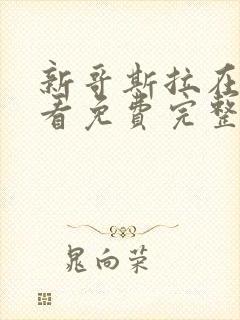 新哥斯拉在
看免费完整
晁向荣